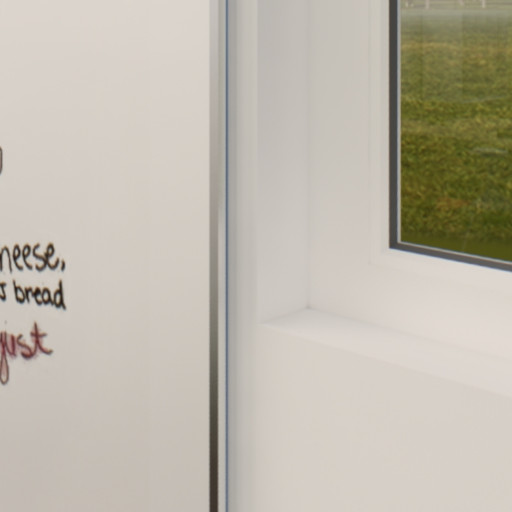 heese,
s bread
just